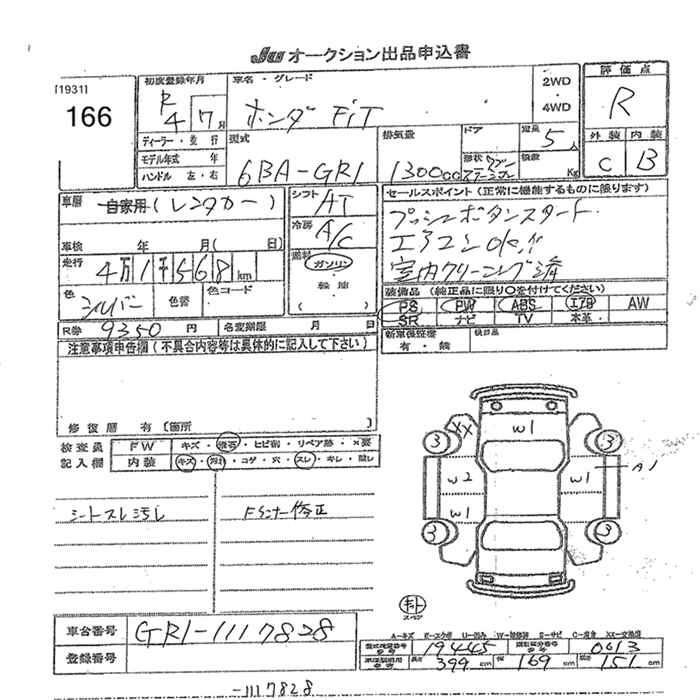 JU オークション出品申込書
[1931]
166
初度登録年月 R 4 7月
車名・グレード ホンダ FiT
2WD ・ 4WD
評価点 R
外装 内装
C B
ディーラー・並行
モデル年式 年
ハンドル 左・右
型式 6BA-GR1
排気量 1300cc
ドア
形状
定員 5人
積載 Kg
車歴 自家用(レンタカー)
シフト AT
冷房 A/C
燃料 ガソリン・軽油
車検 年 月( 日)
走行 4万1千568km
色 シルバー 色替 色コード
R券 9350円 名変期限 月 日
セールスポイント(正常に機能するものに限ります)
プッシュボタンスタート
エアコンOK!!
室内クリーニング済
装備品(純正品に限り○を付けてください)
PS PW ABS エアB AW
SR ナビ TV 本革
新車保証書 有・無
後日品
注意事項申告欄(不具合内容等は具体的に記入して下さい)
修復歴 有〔箇所 〕
検査員記入欄
FW キズ・飛石・ヒビ割・リペア跡・×要
内装 キズ・汚れ・コゲ・穴・スレ・キレ・臭い
シートスレ汚レ
Fインナー修正
W1
XX
3 3
W2 W1 A1
W1
3 3
スペア
A=キズ E=エクボ U=凹み W=補修跡 S=サビ C=腐食 XX=交換済
車台番号 GR1-1117828
登録番号
型式指定番号 19445 類別区分番号 0013
長さ 399cm 幅 169cm 高さ 151cm
-1117828